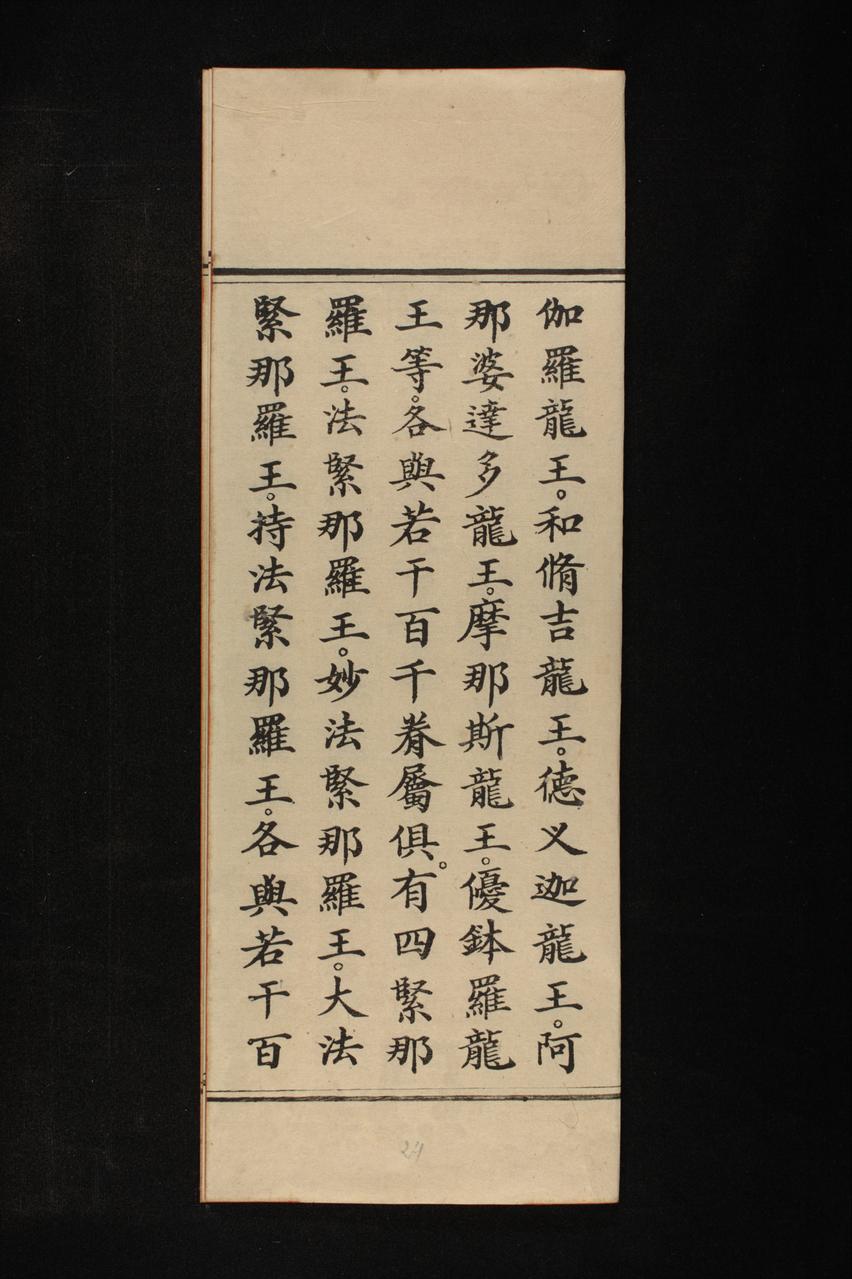 伽羅龍王。和脩吉龍王。德叉迦龍王。阿
那婆達多龍王。摩那斯龍王。優鉢羅龍
王等。各與若干百千眷屬俱。有四緊那
羅王。法緊那羅王。妙法緊那羅王。大法
緊那羅王。持法緊那羅王。各與若干百
24